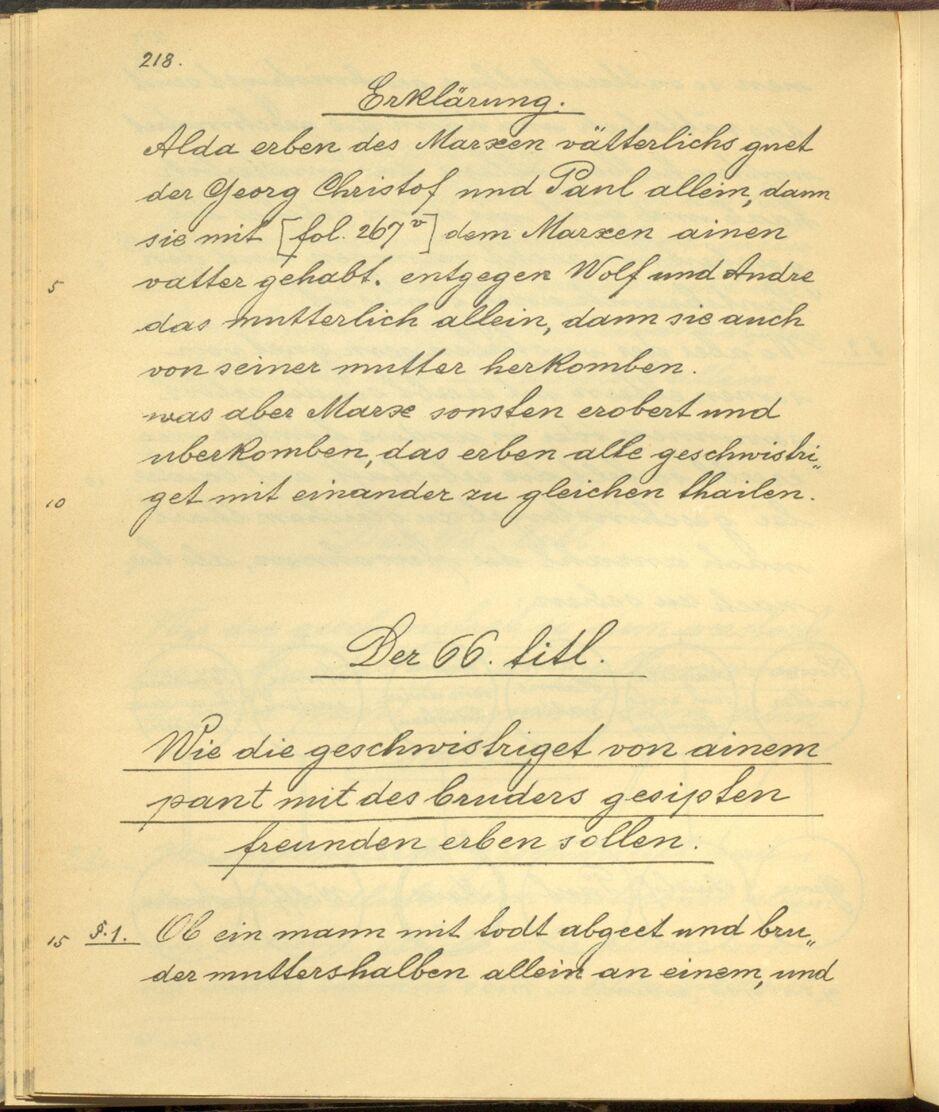 218.
Erklärung.
Alda erben des Marxen vätterlichs guet
der Georg Christof und Paul allein, dann
sie mit [fol. 267v] dem Marxen ainen
5 vatter gehabt. entgegen Wolf und Andre
das mutterlich allein, dann sie auch
von seiner mutter herkomben.
was aber Marx sonsten erobert und
uberkomben, das erben alle geschwistri„
10 get mit einander zu gleichen thailen.
Der 66. titl.
Wie die geschwistriget von ainem
pant mit des bruders gesipten
freunden erben sollen.
15 §.1. Ob ein mann mit todt abgeet und bru„
der muttershalben allein an einem, und